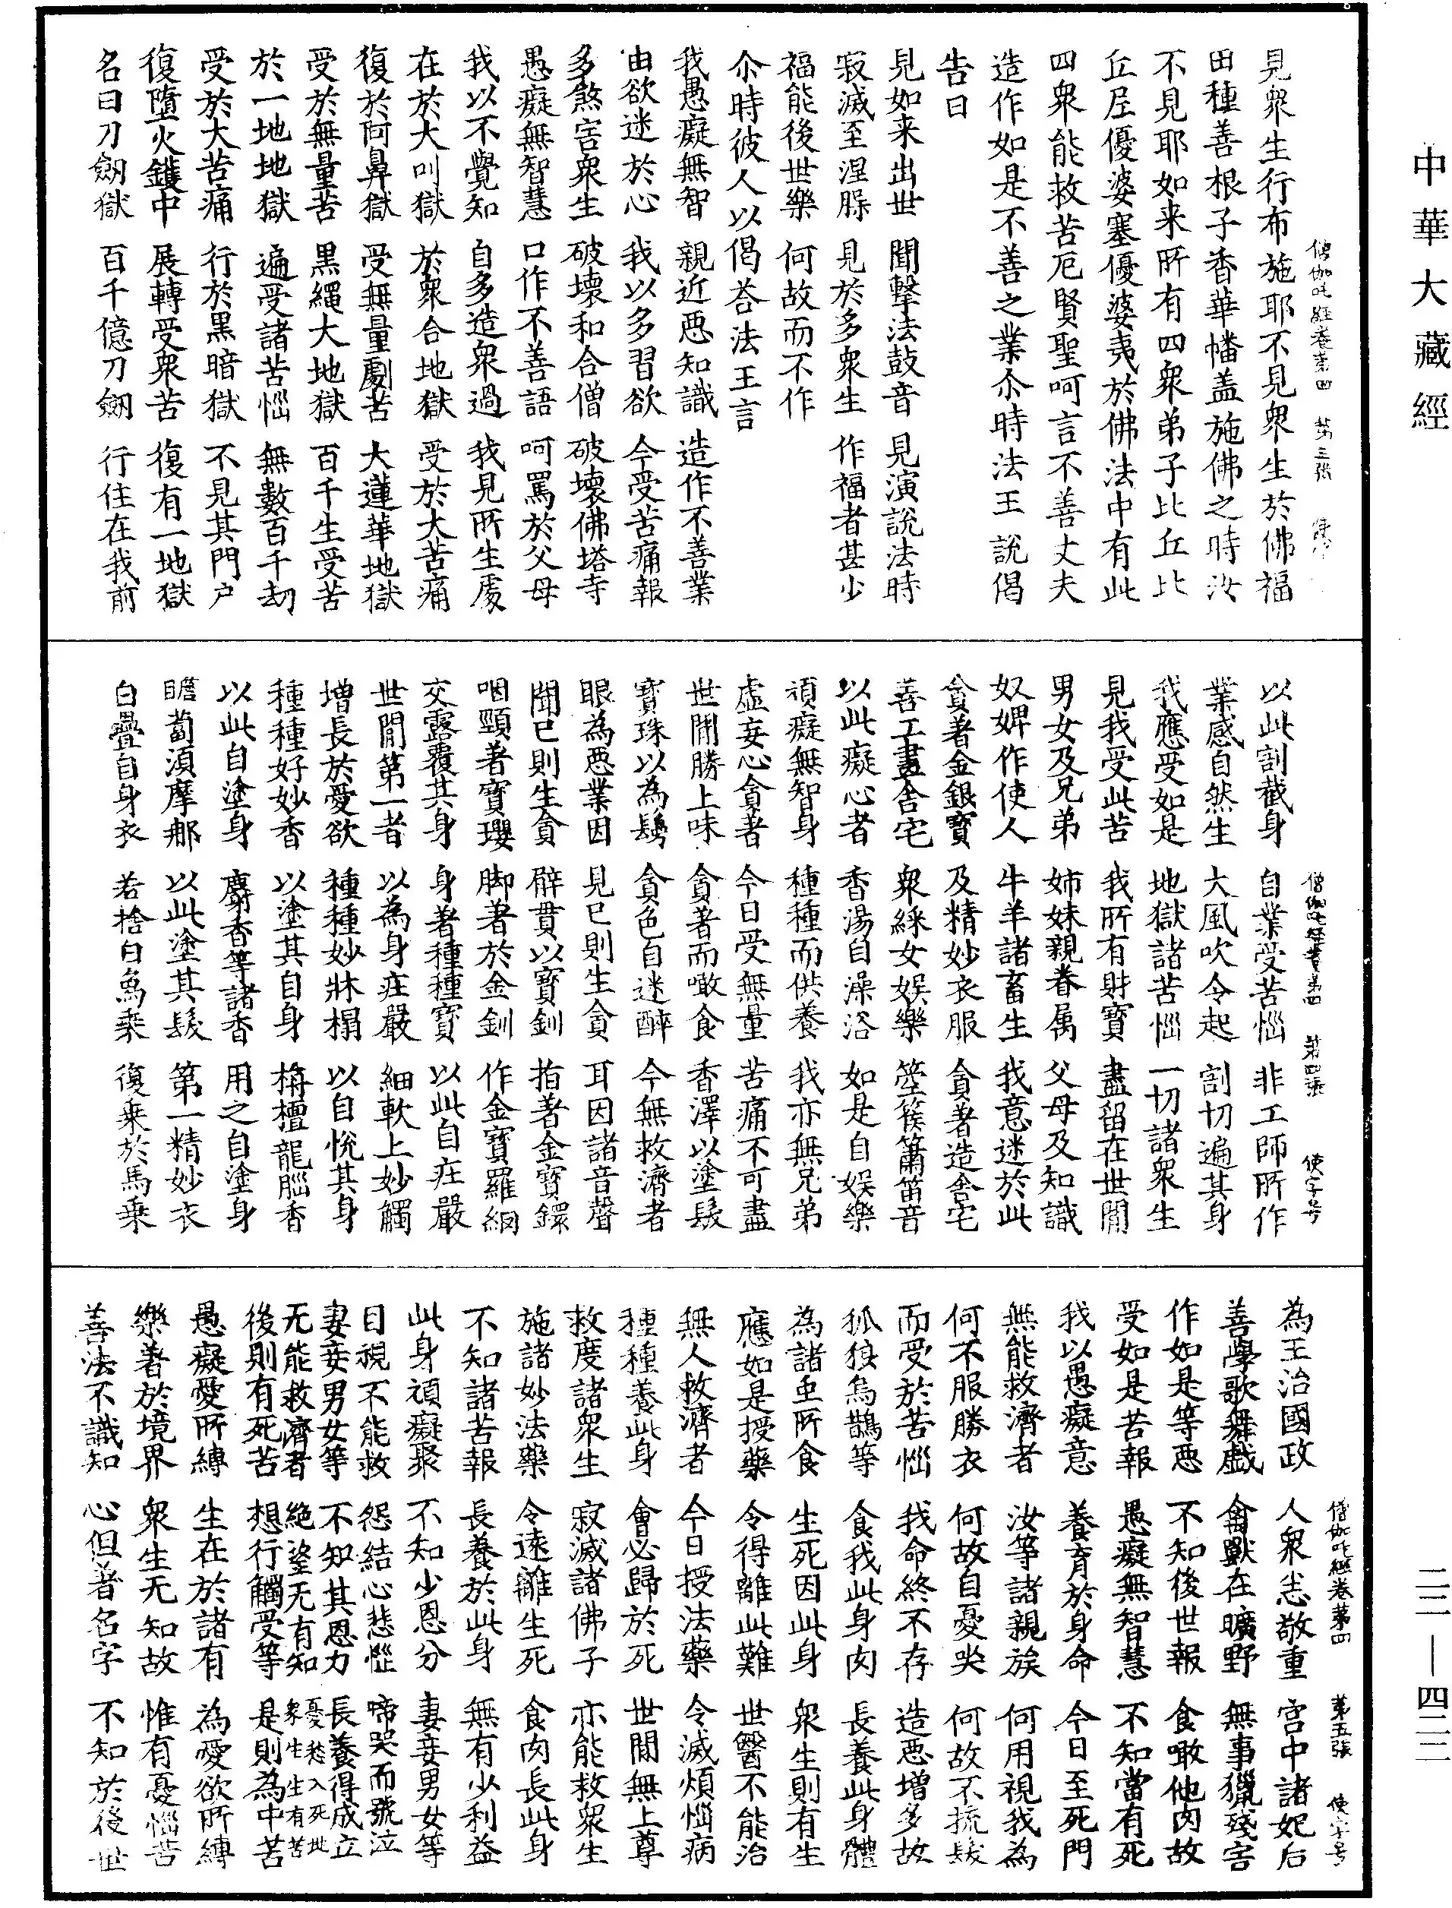 中華大藏經
僧伽吒經卷第四 第三張 使字号
見衆生行布施耶不見衆生於佛福
田種善根子香華幡盖施佛之時汝
不見耶如来所有四衆弟子比丘比
丘尼優婆塞優婆夷於佛法中有此
四衆能救苦厄賢聖呵言不善丈夫
造作如是不善之業尒時法王說偈
告曰
見如来出世 聞擊法鼓音 見演說法時
寂滅至涅槃 見於多衆生 作福者甚少
福能後世樂 何故而不作
尒時彼人以偈荅法王言
我愚癡無智 親近惡知識 造作不善業
由欲迷於心 我以多習欲 今受苦痛報
多煞害衆生 破壞和合僧 破壞佛塔寺
愚癡無智慧 口作不善語 呵罵於父母
我以不覺知 自多造衆過 我見所生處
在於大叫獄 於衆合地獄 受於大苦痛
復於阿鼻獄 受無量劇苦 大蓮華地獄
受於無量苦 黑繩大地獄 百千生受苦
於一地地獄 遍受諸苦惱 無數百千劫
受於大苦痛 行於黑暗獄 不見其門户
復墮火鑊中 展轉受衆苦 復有一地獄
名曰刀劒獄 百千億刀劒 行住在我前
僧伽吒經卷第四 第四張 使字号
以此割截身 自業受苦惱 非工師所作
業感自然生 大風吹令起 割切遍其身
我應受如是 地獄諸苦惱 一切諸衆生
見我受此苦 我所有財寶 盡留在世間
男女及兄弟 姉妹親眷属 父母及知識
奴婢作使人 牛羊諸畜生 我意迷於此
貪著金銀寶 及精妙衣服 貪著造舍宅
善工畫舍宅 衆綵女娛樂 箜篌簫笛音
以此癡心者 香湯自澡浴 如是自娛樂
頑癡無智身 種種而供養 我亦無兄弟
虛妄心貪著 今日受無量 苦痛不可盡
世間勝上味 貪著而噉食 香澤以塗髮
寶珠以為鬘 貪色自迷醉 今無救濟者
眼為惡業因 見已則生貪 耳因諸音聲
聞已則生貪 臂貫以寶釧 指著金寶鐶
咽頸著寶瓔 脚著於金釧 作金寶羅網
交露覆其身 身著種種寶 以此自庄嚴
世間第一者 以為身庄嚴 細軟上妙觸
增長於愛欲 種種妙牀榻 以自悅其身
種種好妙香 以塗其自身 栴檀龍腦香
以此自塗身 麝香等諸香 用之自塗身
瞻蔔湏摩那 以此塗其髮 第一精妙衣
白疊自身衣 若捨白象乗 復乗於馬乗
僧伽吒經卷第四 第五張 使字号
為王治國政 人衆悉敬重 宫中諸妃后
善學歌舞戲 禽獸在曠野 無事獵殘害
作如是等惡 不知後世報 食噉他肉故
受如是苦報 愚癡無智慧 不知當有死
我以愚癡意 養育於身命 今日至死門
無能救濟者 汝等諸親族 何用視我為
何不服勝衣 何故自憂哭 何故不梳髮
而受於苦惱 我命終不存 造惡增多故
狐狼烏鵲等 食我此身肉 長養此身體
為諸虫所食 生死因此身 衆生則有生
應如是授藥 令得離此難 世醫不能治
無人救濟者 今日授法藥 令滅煩惱病
種種養此身 會必歸於死 世間無上尊
救度諸衆生 寂滅諸佛子 亦能救衆生
施諸妙法藥 令遠離生死 食肉長此身
不知諸苦報 長養於此身 無有少利益
此身頑癡聚 不知少恩分 妻妾男女等
目視不能救 怨結心悲惱 啼哭而號泣
妻妾男女等 不知其恩力 長養得成立
无能救濟者 絶望无有知 憂愁入死世 衆生生有苦
後則有死苦 想行觸受等 是則為中苦
愚癡愛所縛 生在於諸有 為愛欲所縛
樂著於境界 衆生无知故 惟有憂惱苦
善法不識知 心但著名字 不知於後世
二二—四二二